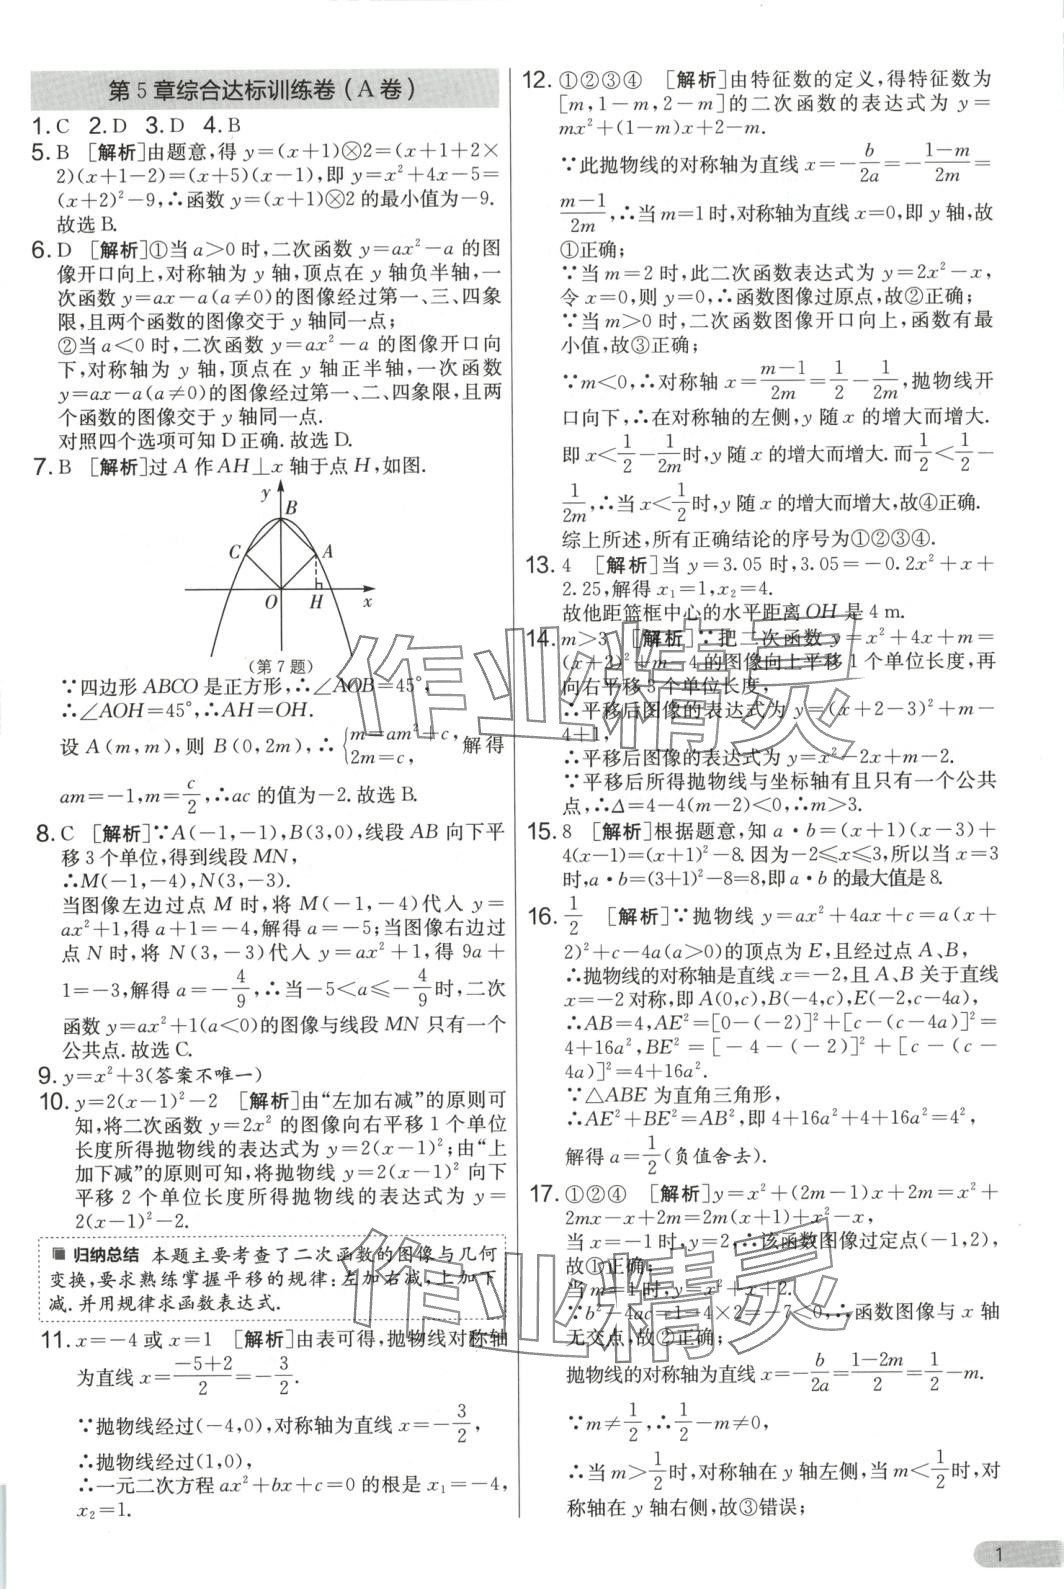 第5章综合达标训练卷(A卷)
1. C 2. D 3. D 4. B
5. B [解析]由题意,得 y=(x+1)⊗2=(x+1+2×
2)(x+1-2)=(x+5)(x-1),即 y=x²+4x-5=
(x+2)²-9,∴函数 y=(x+1)⊗2的最小值为-9.
故选B.
6. D [解析]①当 a>0 时,二次函数 y=ax²-a 的图
像开口向上,对称轴为 y 轴,顶点在 y 轴负半轴,一
次函数 y=ax-a(a≠0)的图像经过第一、三、四象
限,且两个函数的图像交于 y 轴同一点;
②当 a<0 时,二次函数 y=ax²-a 的图像开口向
下,对称轴为 y 轴,顶点在 y 轴正半轴,一次函数
y=ax-a(a≠0)的图像经过第一、二、四象限,且两
个函数的图像交于 y 轴同一点.
对照四个选项可知 D 正确.故选 D.
7. B [解析]过 A 作 AH⊥x 轴于点 H,如图.
y
B
C
A
O
H
x
(第7题)
∵四边形 ABCO 是正方形,∴∠AOB=45°,
∴∠AOH=45°,∴AH=OH.
设 A(m,m),则 B(0,2m),∴{m=am²+c, 2m=c, 解得
am=-1,m=c/2,∴ac 的值为-2.故选 B.
8. C [解析]∵A(-1,-1),B(3,0),线段 AB 向下平
移3个单位,得到线段 MN,
∴M(-1,-4),N(3,-3).
当图像左边过点 M 时,将 M(-1,-4)代入 y=
ax²+1,得 a+1=-4,解得 a=-5;当图像右边过
点 N 时,将 N(3,-3)代入 y=ax²+1,得 9a+
1=-3,解得 a=-4/9,∴当-5<a≤-4/9时,二次
函数 y=ax²+1(a<0)的图像与线段 MN 只有一个
公共点.故选 C.
9. y=x²+3(答案不唯一)
10. y=2(x-1)²-2 [解析]由“左加右减”的原则可
知,将二次函数 y=2x² 的图像向右平移 1 个单位
长度所得抛物线的表达式为 y=2(x-1)²;由“上
加下减”的原则可知,将抛物线 y=2(x-1)² 向下
平移 2 个单位长度所得抛物线的表达式为 y=
2(x-1)²-2.
归纳总结 本题主要考查了二次函数的图像与几何
变换,要求熟练掌握平移的规律:左加右减,上加下
减.并用规律求函数表达式.
11. x=-4 或 x=1 [解析]由表可得,抛物线对称轴
为直线 x=(-5+2)/2=-3/2.
∵抛物线经过(-4,0),对称轴为直线 x=-3/2,
∴抛物线经过(1,0),
∴一元二次方程 ax²+bx+c=0 的根是 x₁=-4,
x₂=1.
12. ①②③④ [解析]由特征数的定义,得特征数为
[m,1-m,2-m]的二次函数的表达式为 y=
mx²+(1-m)x+2-m.
∵此抛物线的对称轴为直线 x=-b/2a=-(1-m)/2m=
(m-1)/2m,∴当 m=1时,对称轴为直线 x=0,即 y 轴,故
①正确;
∵当 m=2 时,此二次函数表达式为 y=2x²-x,
令 x=0,则 y=0,∴函数图像过原点,故②正确;
∵当 m>0 时,二次函数图像开口向上,函数有最
小值,故③正确;
∵m<0,∴对称轴 x=(m-1)/2m=1/2-1/2m,抛物线开
口向下,∴在对称轴的左侧,y 随 x 的增大而增大.
即 x<1/2-1/2m时,y 随 x 的增大而增大.而1/2<1/2-
1/2m,∴当 x<1/2时,y 随 x 的增大而增大,故④正确.
综上所述,所有正确结论的序号为①②③④.
13. 4 [解析]当 y=3.05 时,3.05=-0.2x²+x+
2.25,解得 x₁=1,x₂=4.
故他距篮框中心的水平距离 OH 是 4 m.
14. m>3 [解析]∵把二次函数 y=x²+4x+m=
(x+2)²+m-4 的图像向上平移 1 个单位长度,再
向右平移 3 个单位长度,
∴平移后图像的表达式为 y=(x+2-3)²+m-
4+1,
∴平移后图像的表达式为 y=x²-2x+m-2.
∵平移后所得抛物线与坐标轴有且只有一个公共
点,∴Δ=4-4(m-2)<0,∴m>3.
15. 8 [解析]根据题意,知 a·b=(x+1)(x-3)+
4(x-1)=(x+1)²-8.因为-2≤x≤3,所以当 x=3
时,a·b=(3+1)²-8=8,即 a·b 的最大值是 8.
16. 1/2 [解析]∵抛物线 y=ax²+4ax+c=a(x+
2)²+c-4a(a>0)的顶点为 E,且经过点 A、B,
∴抛物线的对称轴是直线 x=-2,且 A、B 关于直线
x=-2 对称,即 A(0,c),B(-4,c),E(-2,c-4a),
∴AB=4,AE²=[0-(-2)]²+[c-(c-4a)]²=
4+16a²,BE²=[-4-(-2)]²+[c-(c-
4a)]²=4+16a².
∵△ABE 为直角三角形,
∴AE²+BE²=AB²,即 4+16a²+4+16a²=4²,
解得 a=1/2(负值舍去).
17. ①②④ [解析]y=x²+(2m-1)x+2m=x²+
2mx-x+2m=2m(x+1)+x²-x,
当 x=-1 时,y=2,∴该函数图像过定点(-1,2),
故①正确;
当 m=1 时,y=x²+x+2.
∵b²-4ac=1-4×2=-7<0,∴函数图像与 x 轴
无交点,故②正确;
抛物线的对称轴为直线 x=-b/2a=(1-2m)/2=1/2-m.
∵m≠1/2,∴1/2-m≠0,
∴当 m>1/2时,对称轴在 y 轴左侧,当 m<1/2时,对
称轴在 y 轴右侧,故③错误;
作业精灵
作业精灵
1